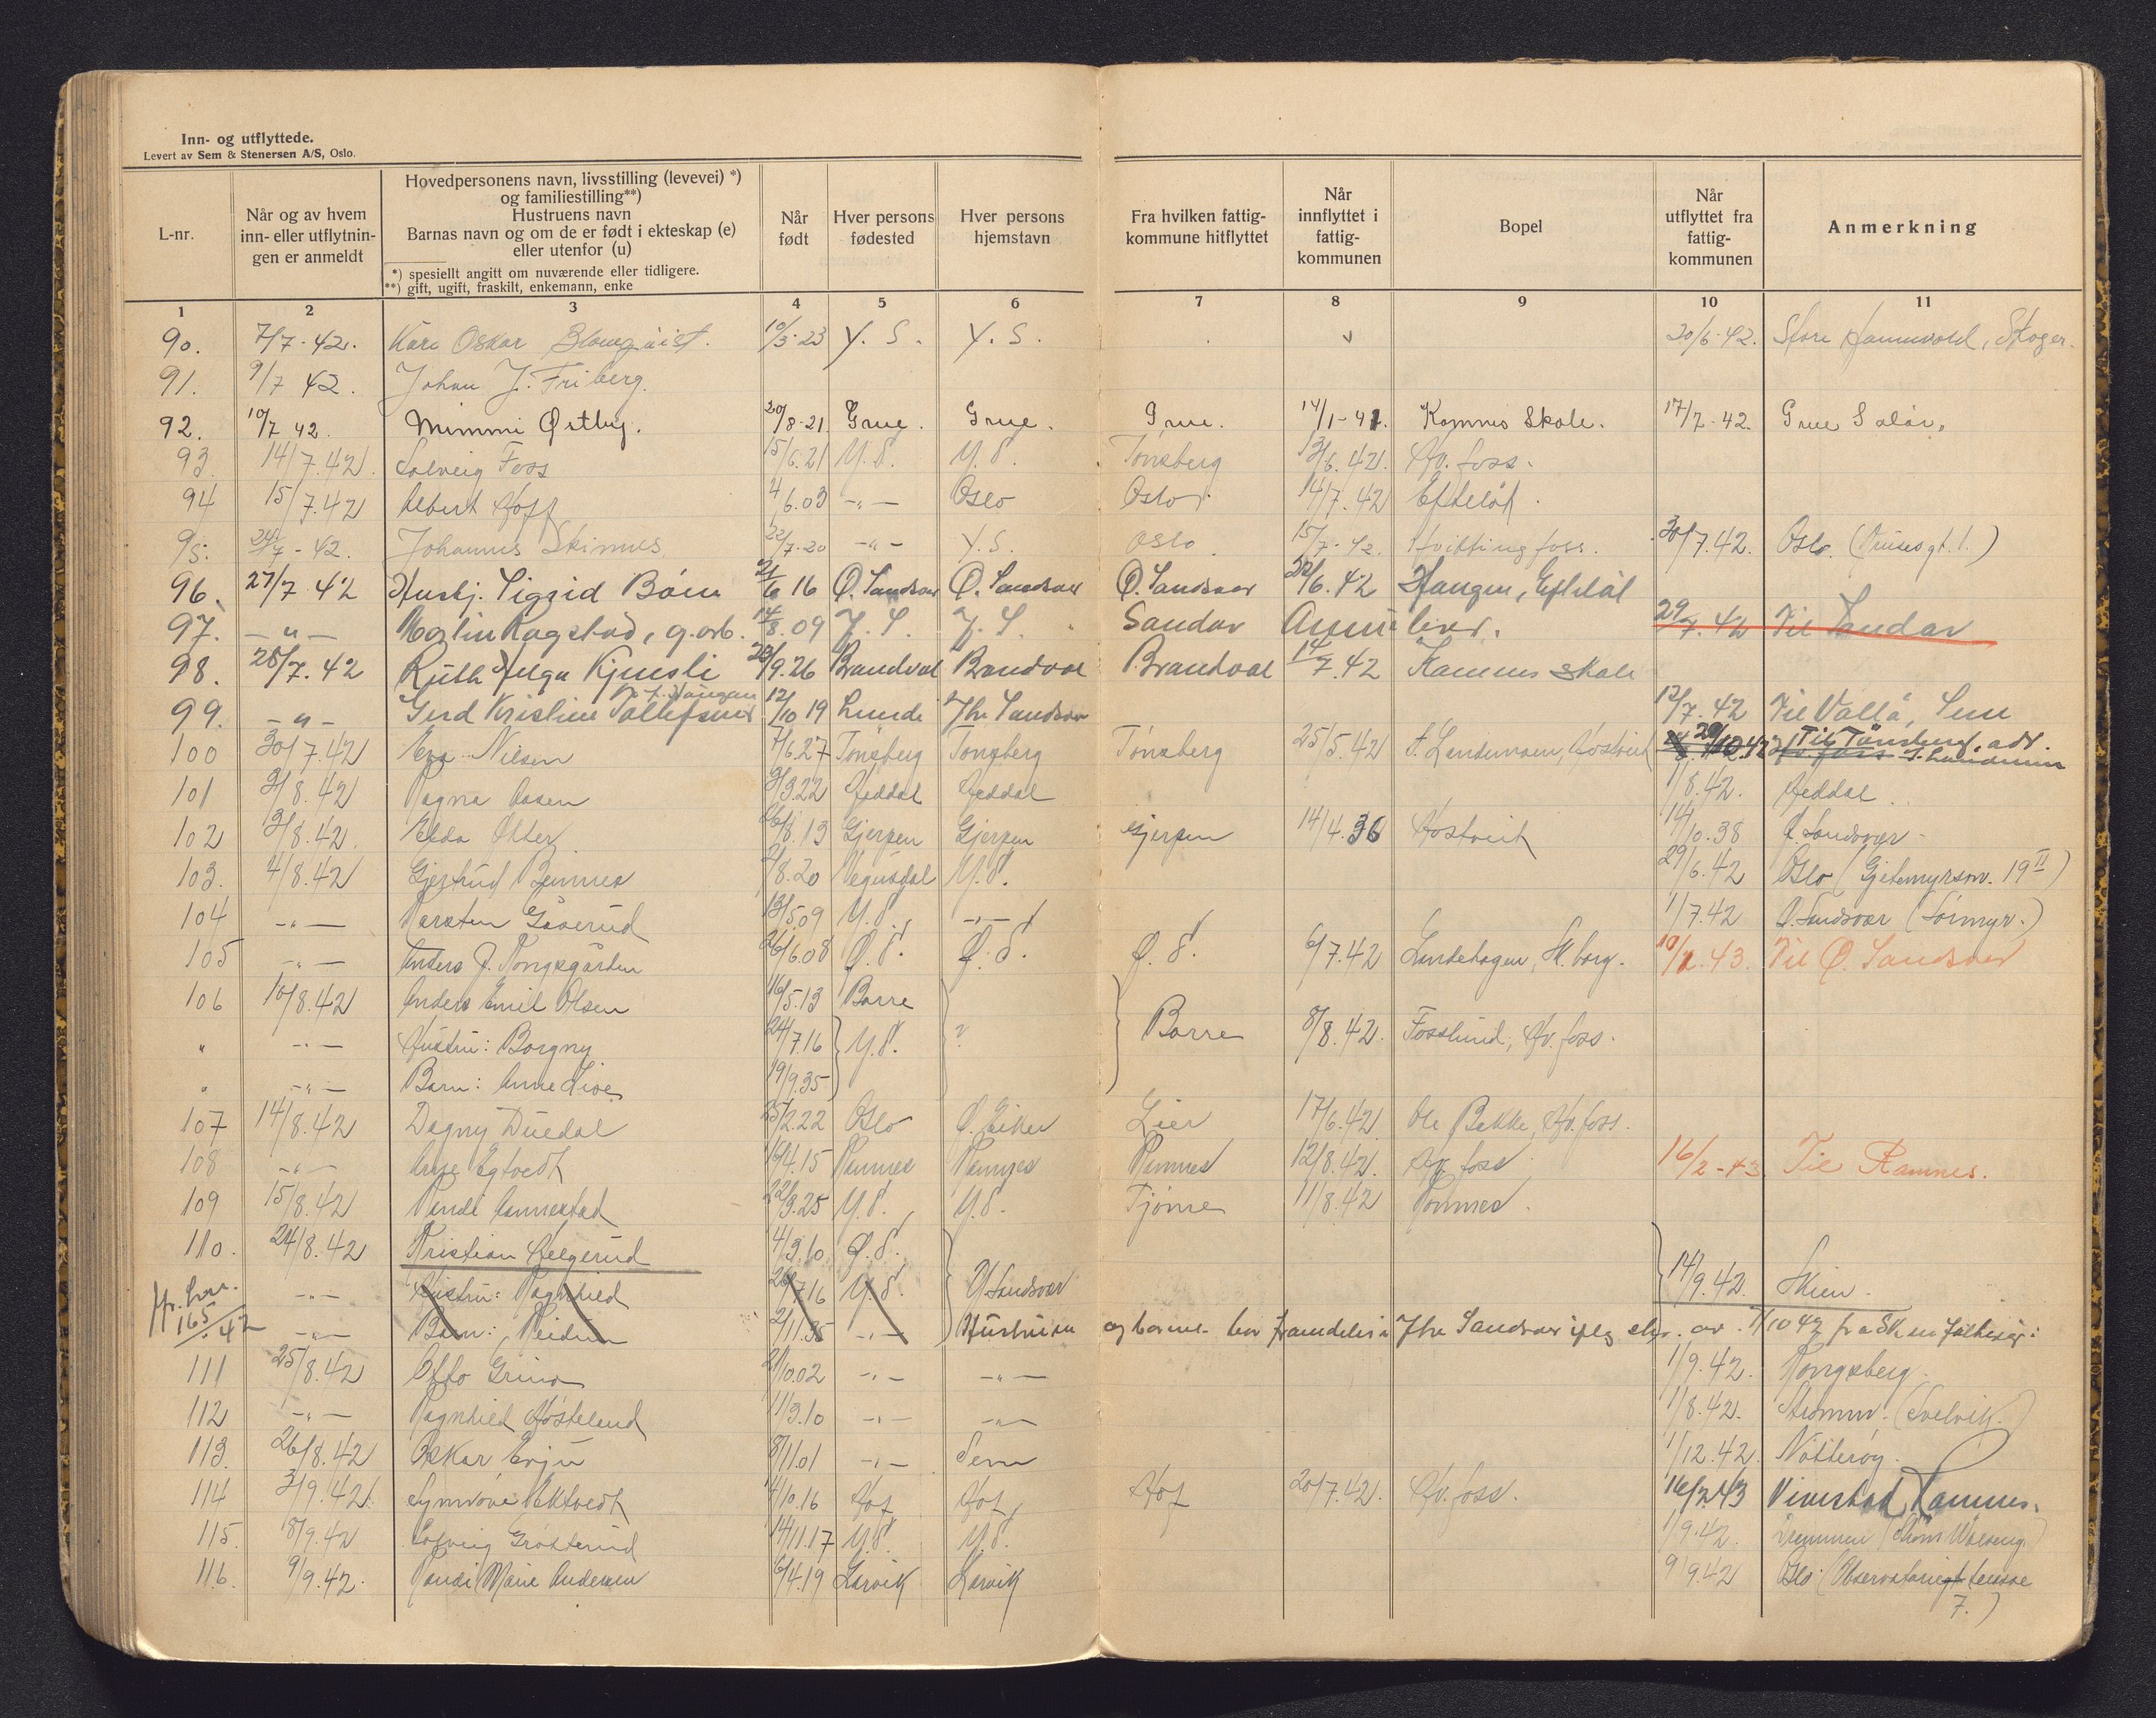 Inn- og utflyttede.
Levert av Sem & Stenersen A/S, Oslo.
L-nr.
Når og av hvem inn- eller utflytnin- gen er anmeldt
Hovedpersonens navn, livsstilling (levevei) *) og familiestilling**) Hustruens navn Barnas navn og om de er født i ekteskap (e) eller utenfor (u)
*) spesiellt angitt om nuværende eller tidligere.
**) gift, ugift, fraskilt, enkemann, enke
Når født
Hver persons fødested
Hver persons hjemstavn
Fra hvilken fattig- kommune hitflyttet
Når innflyttet i fattig- kommunen
Bopel
Når utflyttet fra fattig- kommunen
Anmerkning
1 2 3 4 5 6 7 8 9 10 11
90. 7/7-42. Kåre Oskar Blomqvist. 10/3-23 Y. S. Y. S. 20/6-42. Skoger.
91. 9/7 42. Johan J. Friberg.
92. 10/7 42. Mimmi Østby. 20/8-21 Grue. Grue. Grue. 14/1-41. Komnes Skole. 17/7-42. Grue Solør.
93. 14/7.42. Solveig Foss 15/6.21 Y.S. Y.S. Tønsberg 13/6.42. Hv.foss.
94 15/7.42 Albert Hoff 4/6.03 -"- Oslo Oslo 14/7.42 Efteløt.
95. 24/7-42. Johannes Skinnes 22/7-20 -"- Y.S. Oslo 15/7-42. Hvittingfoss. 30/7.42. Oslo.
96. 27/7 42 Husbj. Sigrid Bøen 21/6 16 Ø. Sandsvær Ø. Sandsvær Ø. Sandsvær 22/6.42 Haugen, Efteløt
97. -"- Martin Ragstad, g.arb. 14/8.09 Y. S. Y. S. Sandar 29/7.42 Til Sandar
98. 28/7.42 Ruth Helga Kjensli 23/9.26 Brandval Brandval Brandval 14/7.42 Komnes Skole
99. -"- Gerd Kristine Tollefsen 12/10 19 Lunde Ytre Sandsvær 12/7.42 Til Vallø, Sem
100 30/7.42 Eva Nilsen 7/6.27 Tønsberg Tønsberg Tønsberg 25/5.42 Til Tønsberg, adr.
101 3/8.42 Ragna Aasen 9/3.22 Heddal Heddal 1/8.42. Heddal.
102 3/8.42. Elda Otter 26/8.13 Gjerpen Gjerpen Gjerpen 14/4.36 Hostveit 14/10.38 Ø. Sandsvær
103. 4/8.42 Gjertrud Bemnes 2/8.20 Vegusdal Y.S. 29/6.42 Oslo (Gjetemyrsv. 19 II)
104 -"- Karsten Gåserud 13/5.09 Y.S. -"- 1/7.42 Ø.Sandsvær (Sormyr.)
105 -"- Anders J. Kongsgården 26/6.08 Ø.S. Ø.S. Ø.S. 6/7.42 Lindehagen, Sk.borg. 10/1.43. Til Ø. Sandsvær
106 10/8.42 Anders Emil Olsen 16/5.13 Borre Borre 8/8.42. Fosslund, Hv.foss.
" -"- Hustru: Borgny 24/7.16 Y.S. ?
" -"- Barn: Anne Lise 19/9.35
107 14/8.42 Dagny Duedal 25/2.22 Oslo Ø. Eiker Lier 17/6.42 Ole Bekke, Hv.foss.
108 -"- Arne Egtvedt 16/4.15 Ramnes Ramnes Ramnes 12/8.42. Hv.foss 16/2-43. Til Ramnes.
109 15/8.42 Randi Annestad 22/3.25 Y.S. Y.S. Tjøme 11/8.42 Komnes.
110. 24/8.42 Kristian Helgerud 4/3.10 Ø.S. 14/9.42. Skien.
-"- Hustru: Ragnhild 26/7.16 Y.S. Y.Sandsvær
165/42 -"- Barn: Reidun 2/11.35 -"- Hustruen og barnet bor fremdeles i Ytre Sandsvær
111 25/8.42 Otto Grino 2/10.02 -"- -"- 1/9.42. Kongsberg.
112 -"- Ragnhild Hosteland 11/3.10 -"- -"- 1/8.42. Strømm. (Svelvik.)
113. 26/8.42 Oskar Evju 8/11.01 -"- Sem 1/12.42. Nøtterøy.
114 3/9.42. Synnøve Ektvedt 4/10.16 Hof Hof Hof 20/7.42. Hv.foss. 16/2.43 Vivestad, Ramnes.
115. 8/9.42 Solveig Grosterud 14/11.17 Y.S. Y.S. 1/9.42. Drammen
116. 9/9.42. Randi Marie Andersen 6/4.19 Larvik Larvik 9/9.42 Oslo (Observatorie terrasse 7.)